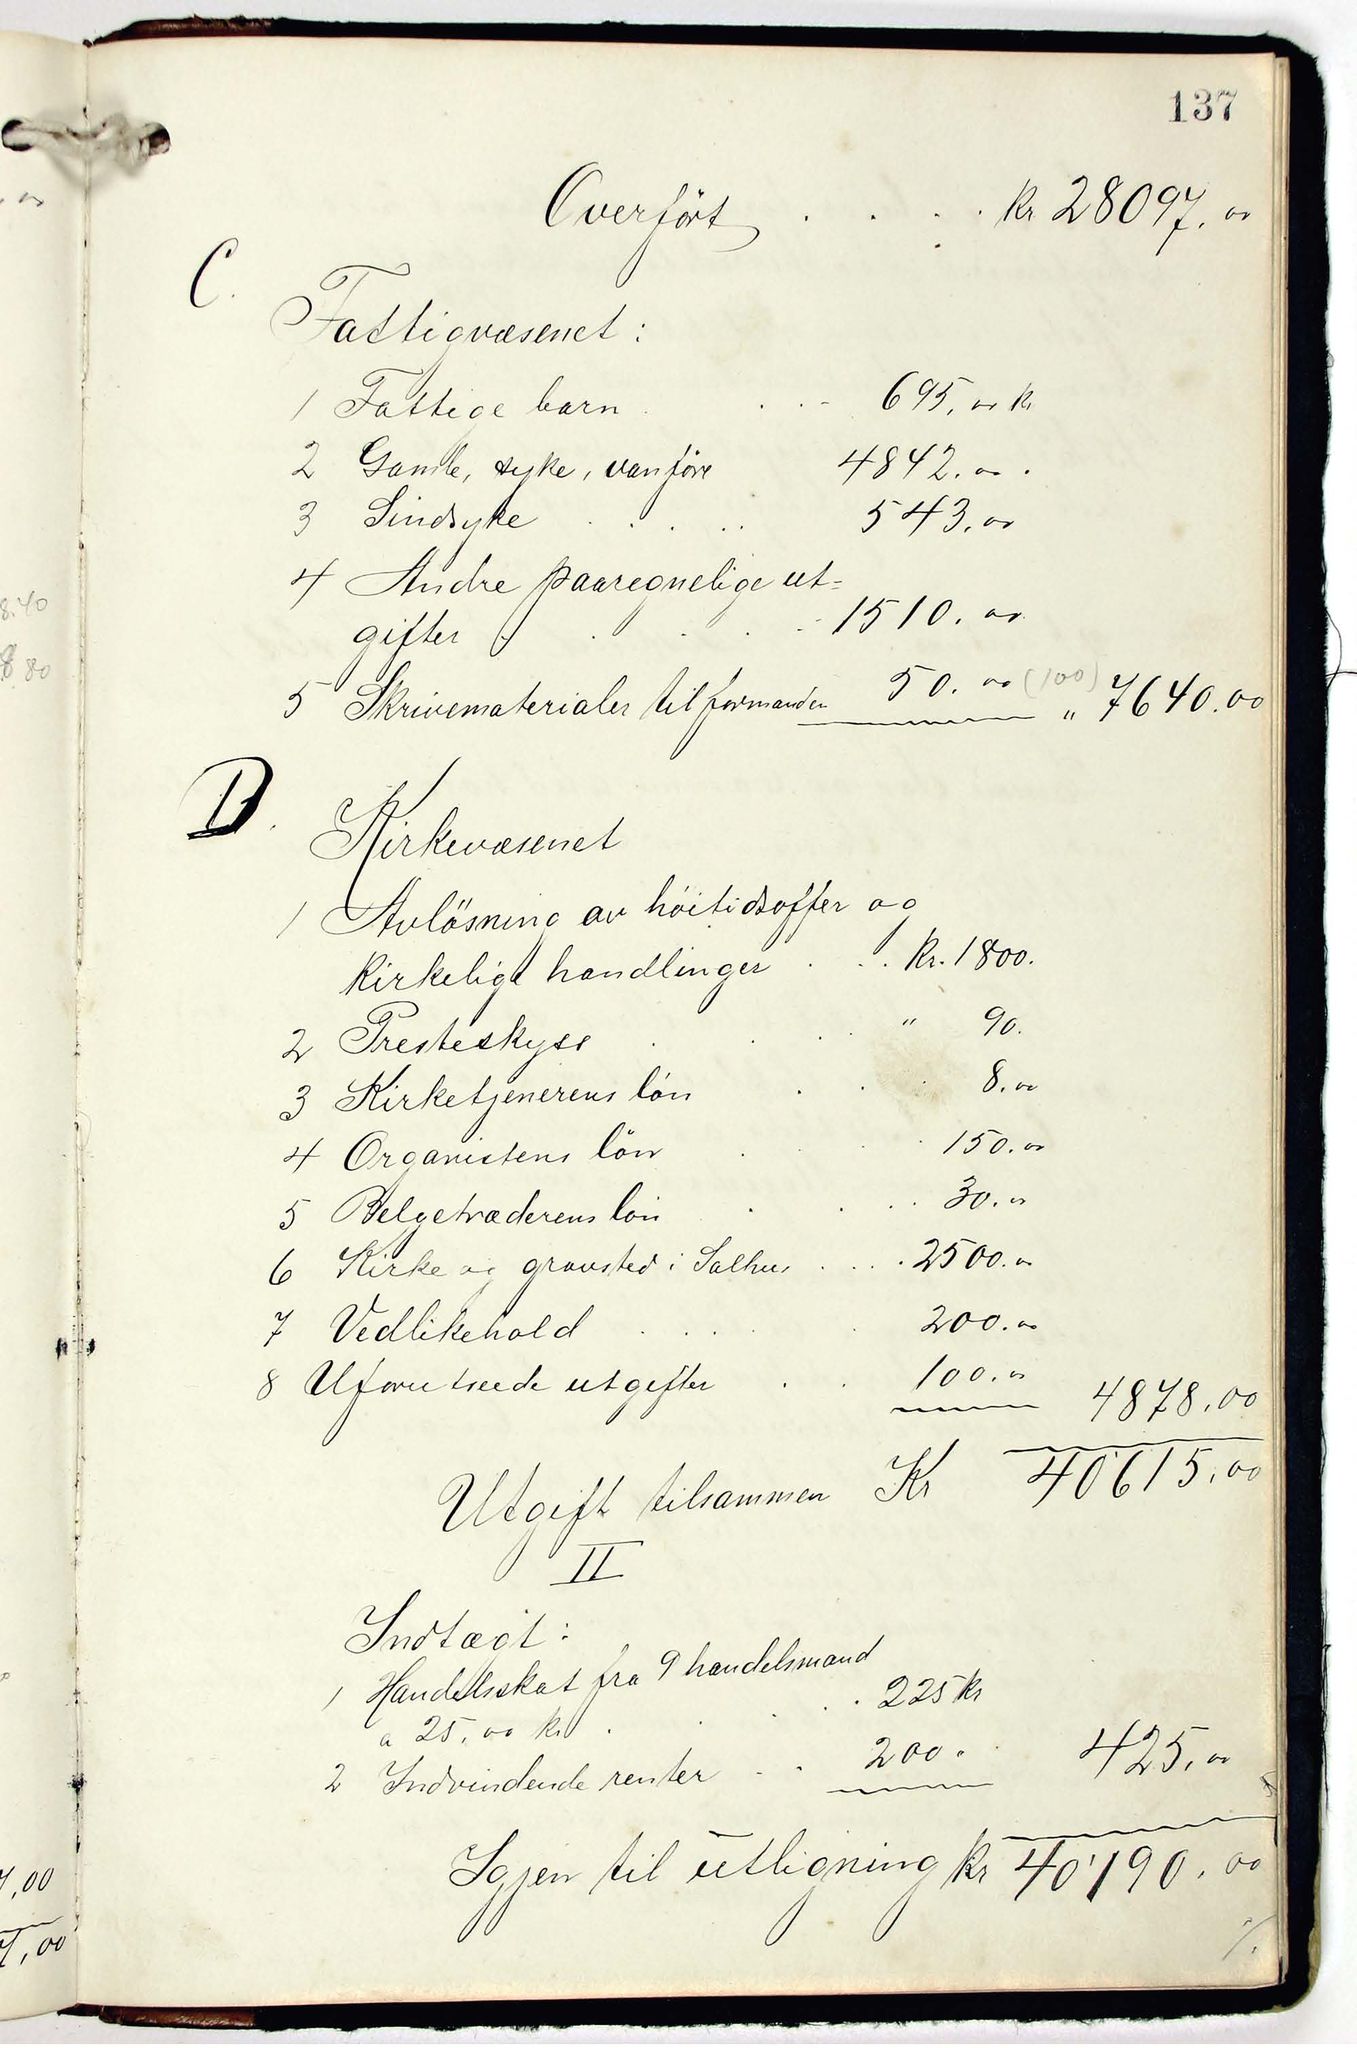 137
Overført . . . . kr 28097.00
C.
Fattigvæsenet:
1 Fattige barn . . . 695.00 kr
2 Gamle, syke, vanføre 4842.00 .
3 Sindsyke . . . . 543.00
4 Andre paaregnelige ut=
gifter . . . . 1510.00
5 Skrivematerialer til formanden 50.00 (100) " 7640.00
D.
Kirkevæsenet
1 Avløsning av høitidsoffer og
kirkelige handlinger . . kr. 1800.
2 Presteskyss . . . " 90.
3 Kirketjenerens løn . . . 8.00
4 Organistens løn . . . 150.00
5 Belgetræderens løn . . . 30.00
6 Kirke og gravsted i Salhus . . . 2500.00
7 Vedlikehold . . . . 200.00
8 Uforutseede utgifter . . 100.00 4878.00
Utgift tilsammen Kr 40615.00
II
Indtægt:
1 Handelsskat fra 9 handelsmænd
a 25.00 kr . . . . 225 kr
2 Indvindende renter . . 200 " 425.00
Igjen til utligning kr 40190.00
8.40
8.80
7,00
7,00